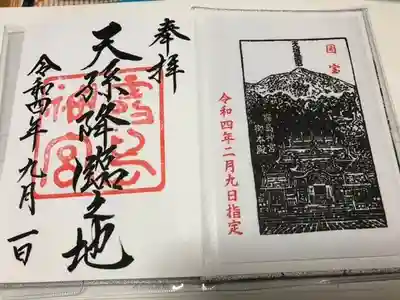 奉拝
天孫降臨之地
霧島神宮
令和四年九月一日
国宝
霧島神宮
御本殿
令和四年二月九日指定